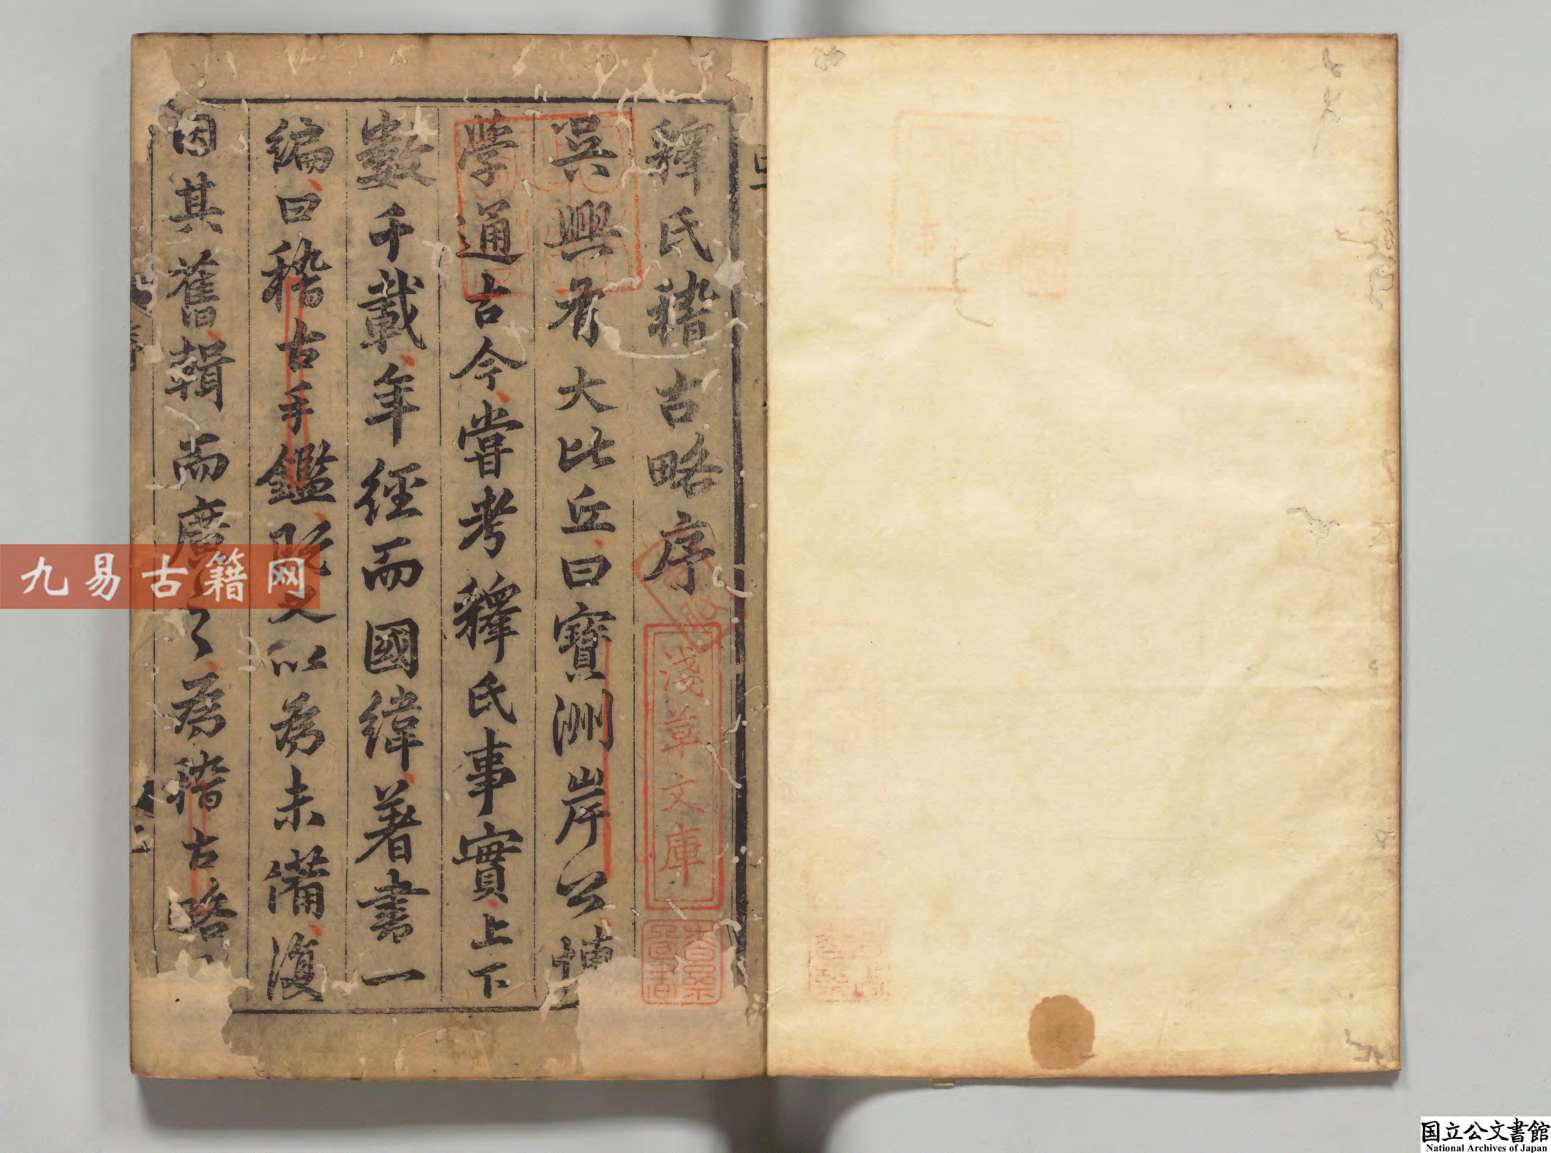 釋氏稽古略序
吳興有大比丘曰寶洲岸公博
學通古今嘗考釋氏事實上下
數千載年經而國緯著書一
編曰稽古手鑑既又以爲未備復
因其舊輯而廣之爲稽古略
淺草文庫
九易古籍网
国立公文書館
National Archives of Japan